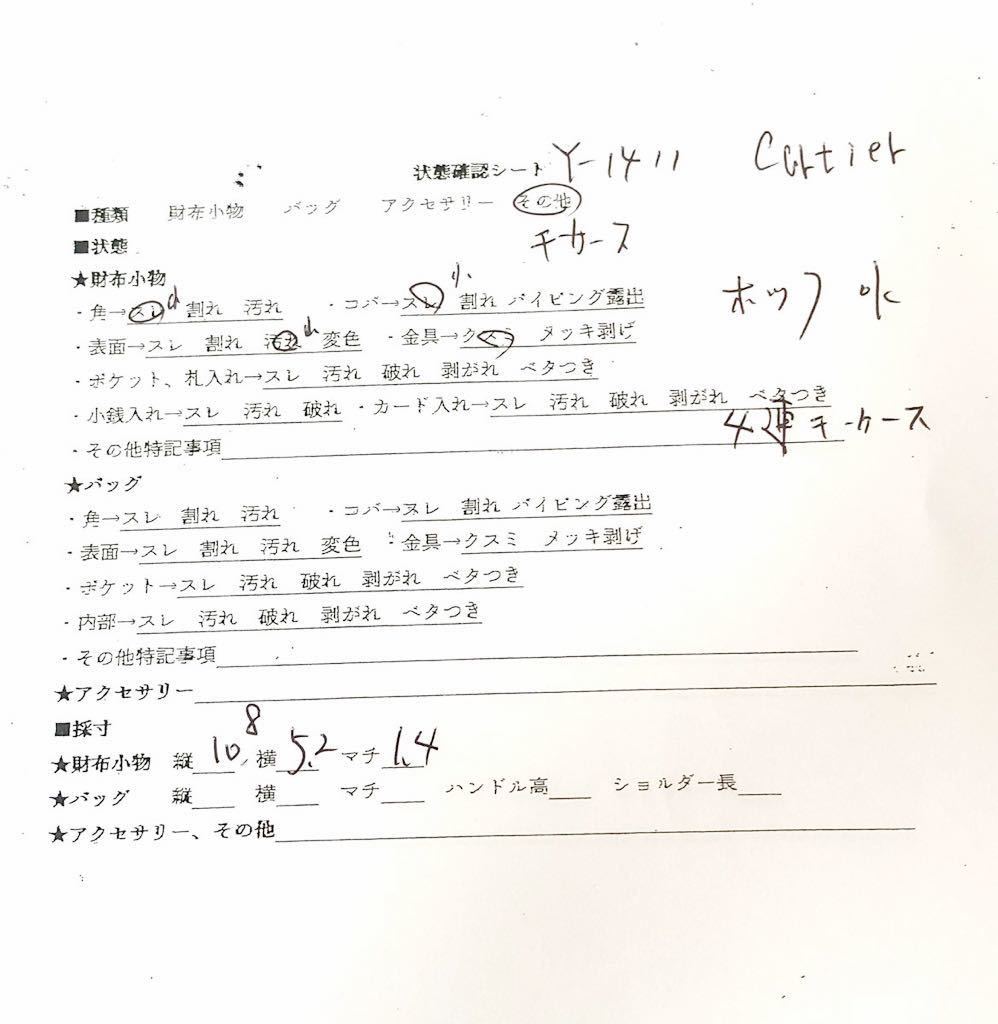 状態確認シート Y-1411 Cartier
■種類 財布小物 バッグ アクセサリー その他
■状態 キーケース
★財布小物
・角→スレ小 割れ 汚れ ・コバ→スレ小 割れ パイピング露出 ホック
・表面→スレ 割れ 汚れ小 変色 ・金具→クスミ メッキ剥げ
・ポケット、札入れ→スレ 汚れ 破れ 剥がれ ベタつき
・小銭入れ→スレ 汚れ 破れ ・カード入れ→スレ 汚れ 破れ 剥がれ ベタつき
4連キーケース
・その他特記事項
★バッグ
・角→スレ 割れ 汚れ ・コバ→スレ 割れ パイピング露出
・表面→スレ 割れ 汚れ 変色 ・金具→クスミ メッキ剥げ
・ポケット→スレ 汚れ 破れ 剥がれ ベタつき
・内部→スレ 汚れ 破れ 剥がれ ベタつき
・その他特記事項
★アクセサリー
■採寸
★財布小物 縦 10.8 横 5.2 マチ 1.4
★バッグ 縦 横 マチ ハンドル高 ショルダー長
★アクセサリー、その他